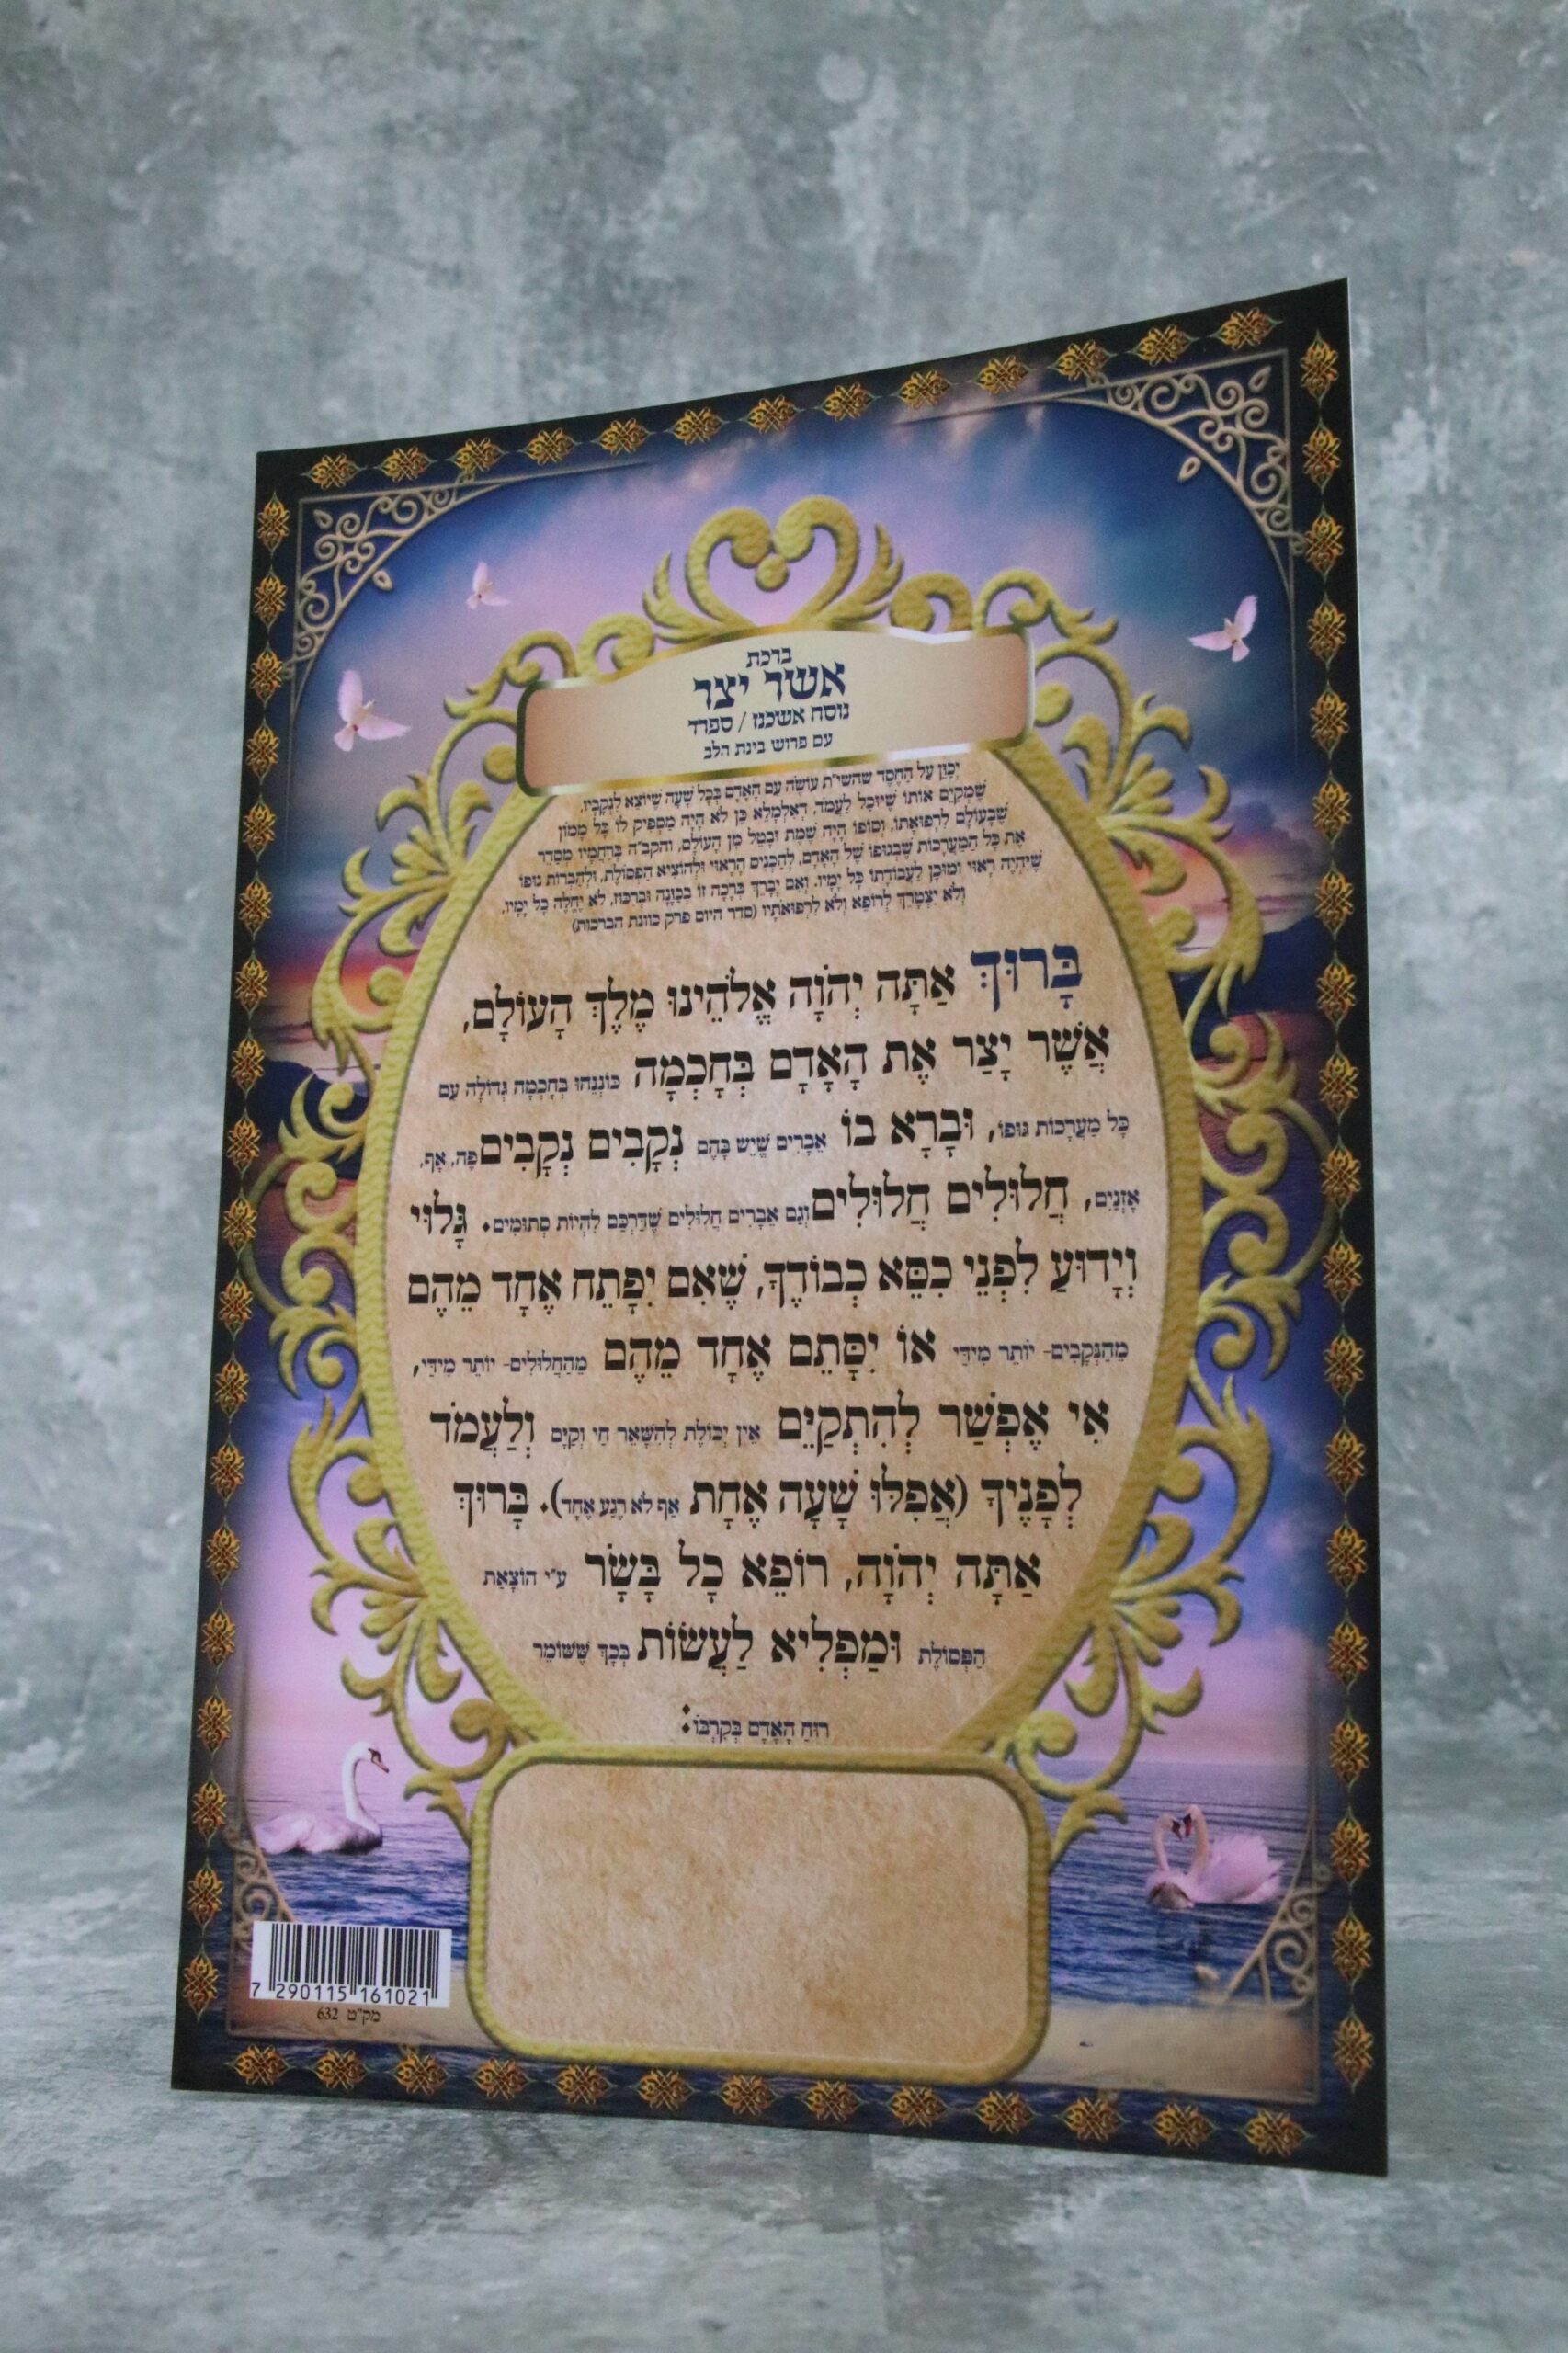 ברכת
אשר יצר
נוסח אשכנז / ספרד
עם פרוש בינת הלב
יְכַוֵּן עַל הַחֶסֶד שהשי"ת עוֹשֶׂה עִם הָאָדָם בְּכָל שָׁעָה שֶׁיּוֹצֵא לִנְקָבָיו,
שֶׁמְּקַיֵּם אוֹתוֹ שֶׁיּוּכַל לַעֲמֹד, דְאִלְמָלֵא כֵן לֹא הָיָה מַסְפִּיק לוֹ כָּל מָמוֹן
שֶׁבָּעוֹלָם לִרְפוּאָתוֹ, וְסוֹפוֹ הָיָה שֶׁמֵּת וּבָטֵל מִן הָעוֹלָם, והקב"ה בְּרַחֲמָיו מְסַדֵּר
אֶת כָּל הַמַּעֲרָכוֹת שֶׁבְּגוּפוֹ שֶׁל הָאָדָם, לְהַכְנִיס הָרָאוּי וּלְהוֹצִיא הַפְּסוֹלֶת, וּלְהַבְרוֹת גּוּפוֹ
שֶׁיִּהְיֶה רָאוּי וּמוּכָן לַעֲבוֹדָתוֹ כָּל יָמָיו. וְאִם יְבָרֵךְ בְּרָכָה זוֹ בְּכַוָּנָה וּבְרִכּוּז, לֹא יֶחֱלֶה כָּל יָמָיו,
וְלֹא יִצְטָרֵךְ לְרוֹפֵא וְלֹא לִרְפוּאוֹתָיו (סדר היום פרק כוונת הברכות)
בָּרוּךְ אַתָּה יְהֹוָה אֱלֹהֵינוּ מֶלֶךְ הָעוֹלָם,
אֲשֶׁר יָצַר אֶת הָאָדָם בְּחָכְמָה כּוֹנְנֵהוּ בְּחָכְמָה גְּדוֹלָה עִם
כָּל מַעַרְכוֹת גּוּפוֹ, וּבָרָא בוֹ אֵבָרִים שֶׁיֵּשׁ בָּהֶם נְקָבִים נְקָבִים פֶּה, אַף,
אָזְנַיִם, חֲלוּלִים חֲלוּלִים וְגַם אֵבָרִים חֲלוּלִים שֶׁדַּרְכָּם לִהְיוֹת סְתוּמִים. גָּלוּי
וְיָדוּעַ לִפְנֵי כִסֵּא כְבוֹדֶךָ, שֶׁאִם יִפָּתֵחַ אֶחָד מֵהֶם
מֵהַנְּקָבִים- יוֹתֵר מִידַּי אוֹ יִסָּתֵם אֶחָד מֵהֶם מֵהַחֲלוּלִים- יוֹתֵר מִידַּי,
אִי אֶפְשַׁר לְהִתְקַיֵּם אֵין יְכוֹלֶת לְהִשָּׁאֵר חַי וְקַיָּם וְלַעֲמֹד
לְפָנֶיךָ (אֲפִלּוּ שָׁעָה אֶחָת אַף לֹא רֶגַע אֶחָד). בָּרוּךְ
אַתָּה יְהֹוָה, רוֹפֵא כָל בָּשָׂר ע"י הוֹצָאַת
הַפְּסוֹלֶת וּמַפְלִיא לַעֲשׂוֹת בְּכָךְ שֶׁשּׁוֹמֵר
רוּחַ הָאָדָם בְּקִרְבּוֹ:
7 290115 161021
מק"ט 632